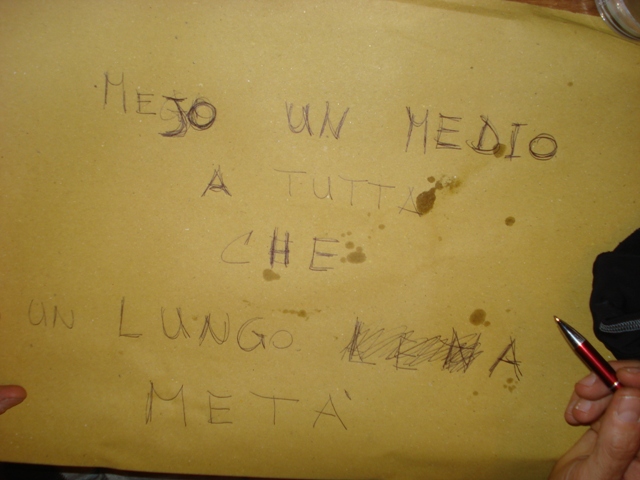 MEJO UN MEDIO
A TUTTA
CHE
UN LUNGO A
METÀ